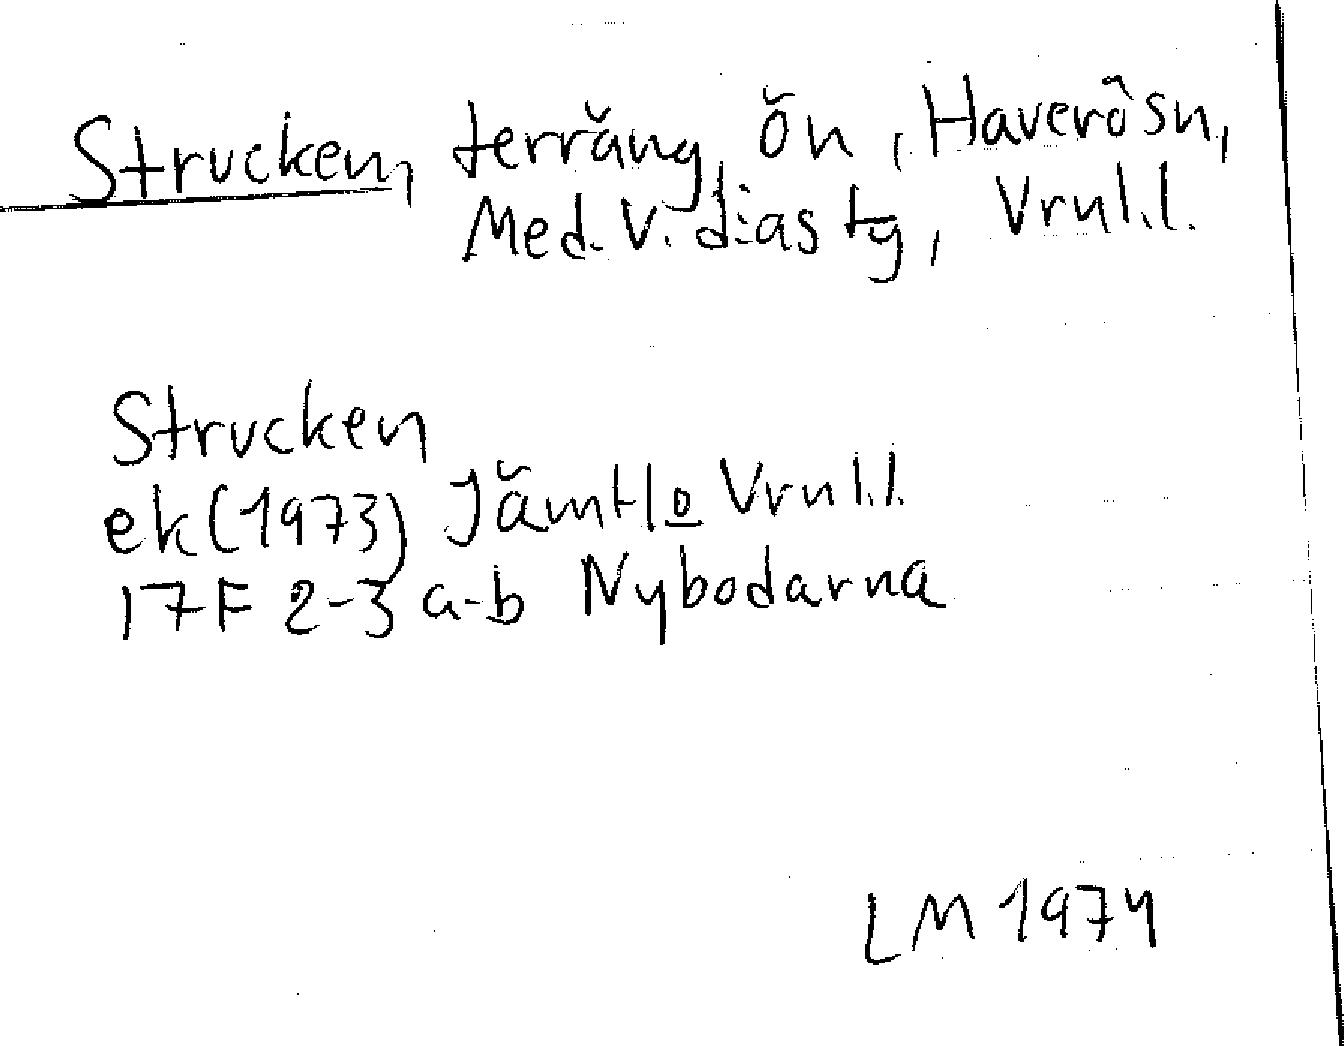 Strucken, terräng, ön, Haverösn,
Med. V. dias tg, Vrnl.l.
Strucken
ek (1973) Jämtl o Vrnl.l.
17F 2-3 a-b Nybodarna
LM 1974